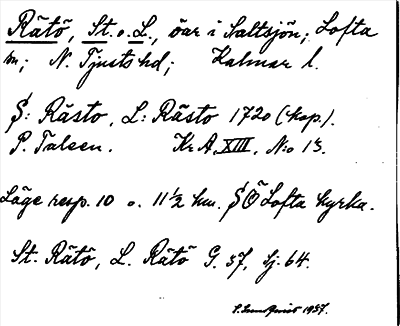 Rätö, St. o. L., öar i Saltsjön; Lofta
sn; N. Tjusts hd; Kalmar l.
S: Rästo, L: Rästo 1720 (kop.).
P. Talsen. Kr. A. XIII, No 13.
Läge resp. 10 o. 11 1/2 km. SÖ Lofta kyrka.
St. Rätö, L. Rätö G. 57, Sj. 64.
1957.